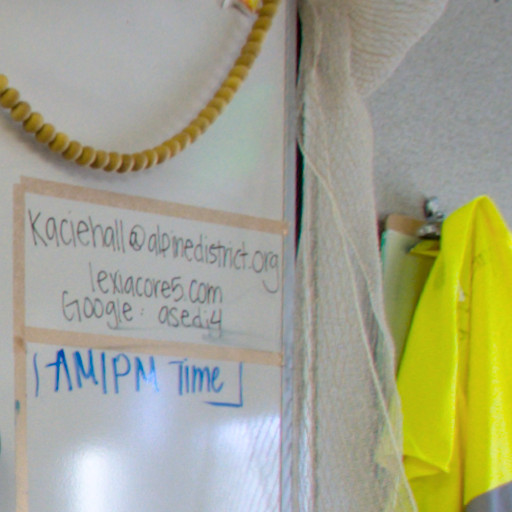 Kaciehall@alpinedistrict.org
lexiacore5.com
Google: asedi4
AM/PM Time